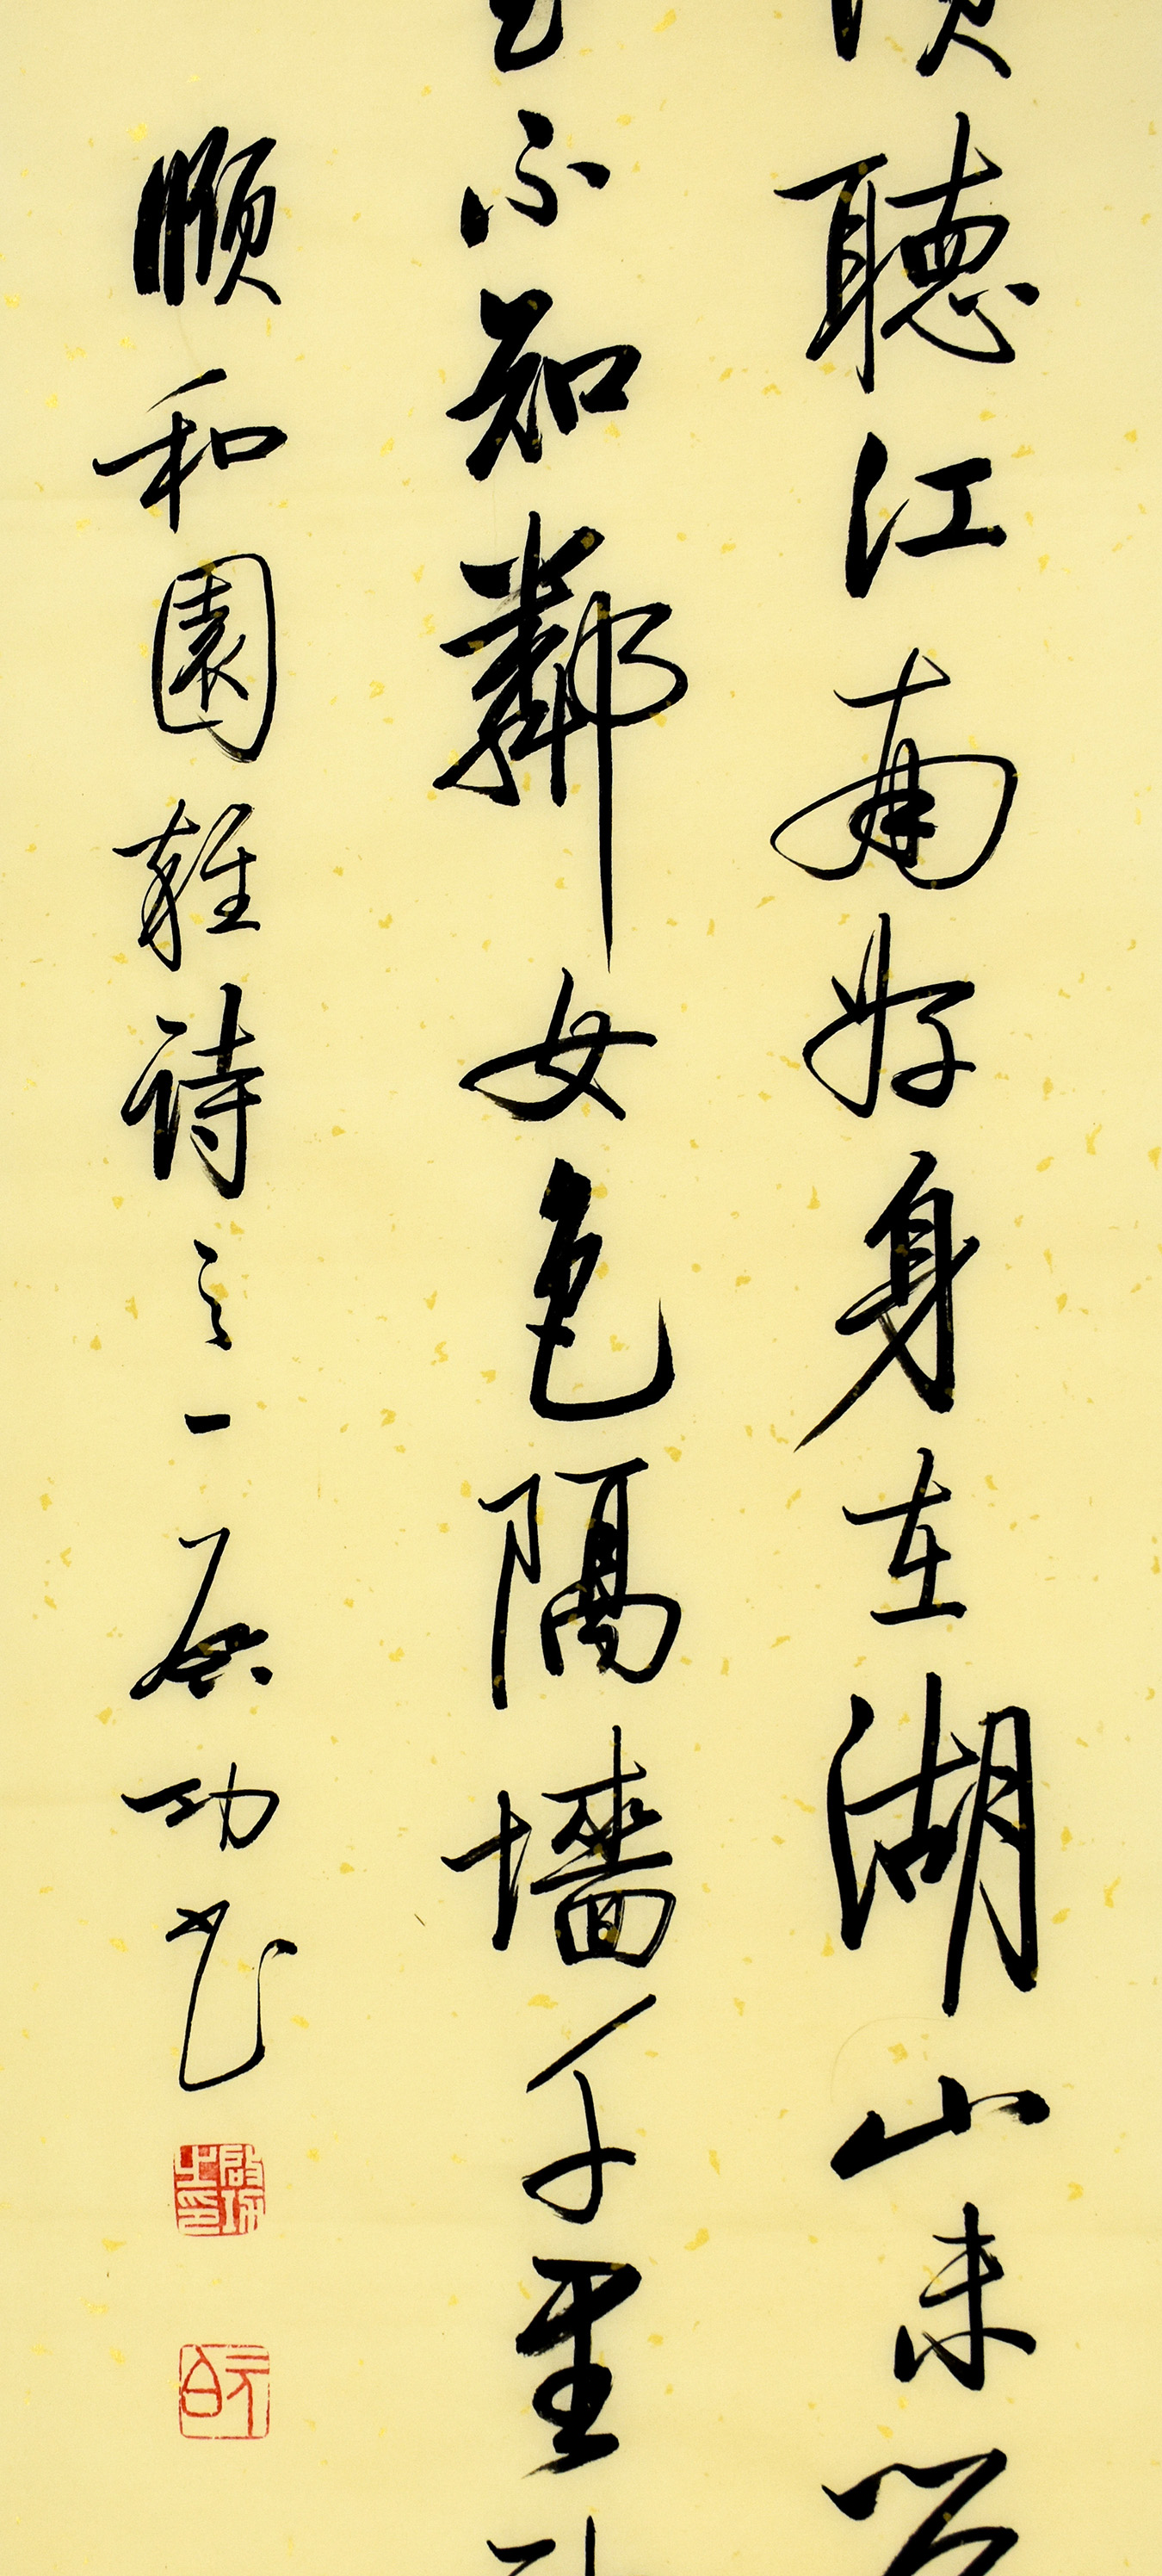 聽江南好身在湖山未覺
不知鄰女色隔墻千里
頤和園雜詩之一啟功書
啟功之印
元白